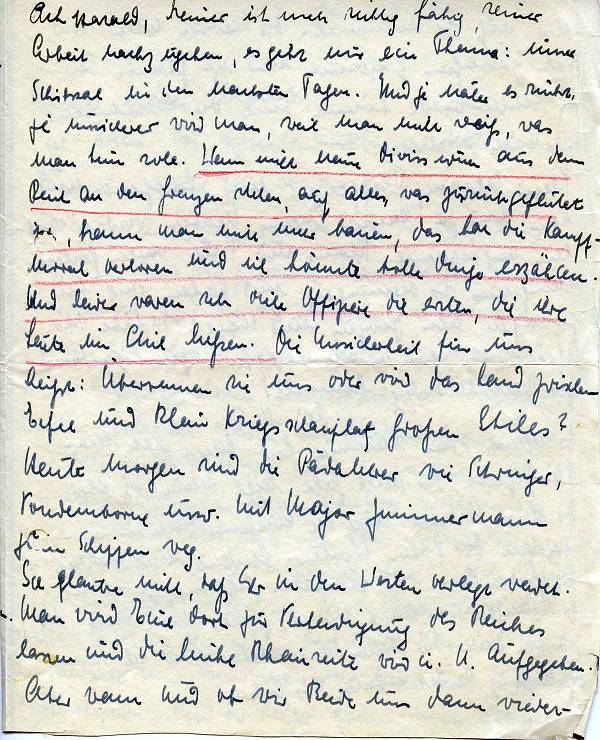 Ach Harald, keiner ist mehr richtig fähig, seiner
Arbeit nachzugehen, es gibt nur ein Thema: unser
Schicksal in den nächsten Tagen. Und je näher es rückt,
je unsicherer wird man, weil man nicht weiß, was
man tun soll. Wenn nicht neue Divisionen aus dem
Reich an den Grenzen stehen, auf alles, was zurückgeflutet
ist, kann man nicht mehr bauen, das hat die Kampf-
moral verloren und ich könnte tolle Dinge erzählen.
Und leider waren sehr viele Offiziere die ersten, die ihre
Leute im Stich ließen. Die Unsicherheit für uns
heißt: Überrennen sie uns oder wird das Land zwischen
Eifel und Rhein Kriegsschauplatz großen Stiles?
Heute Morgen sind die Pädalehrer wie
usw. mit Major
zum Schippen weg.
Ich glaube nicht, daß Ihr in den Westen verlegt werdet.
Man wird Eure dort zur Verteidigung des Reiches
lassen und die linke Rheinseite wird u. U. aufgegeben.
Aber wann und ob wir Beide uns dann wieder-